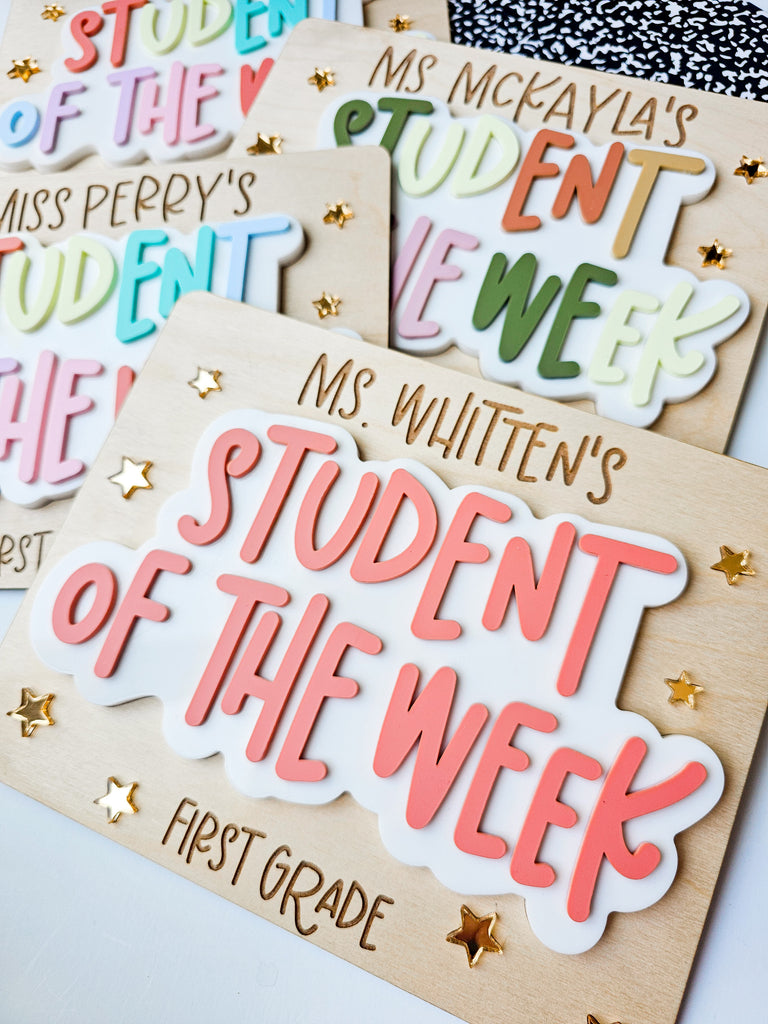 STUDENT
OF THE
MS MCKAYLA'S
STUDENT
THE WEEK
MISS PERRY'S
STUDENT
THE
FIRST
MS. WHITTEN'S
STUDENT
OF THE WEEK
FIRST GRADE